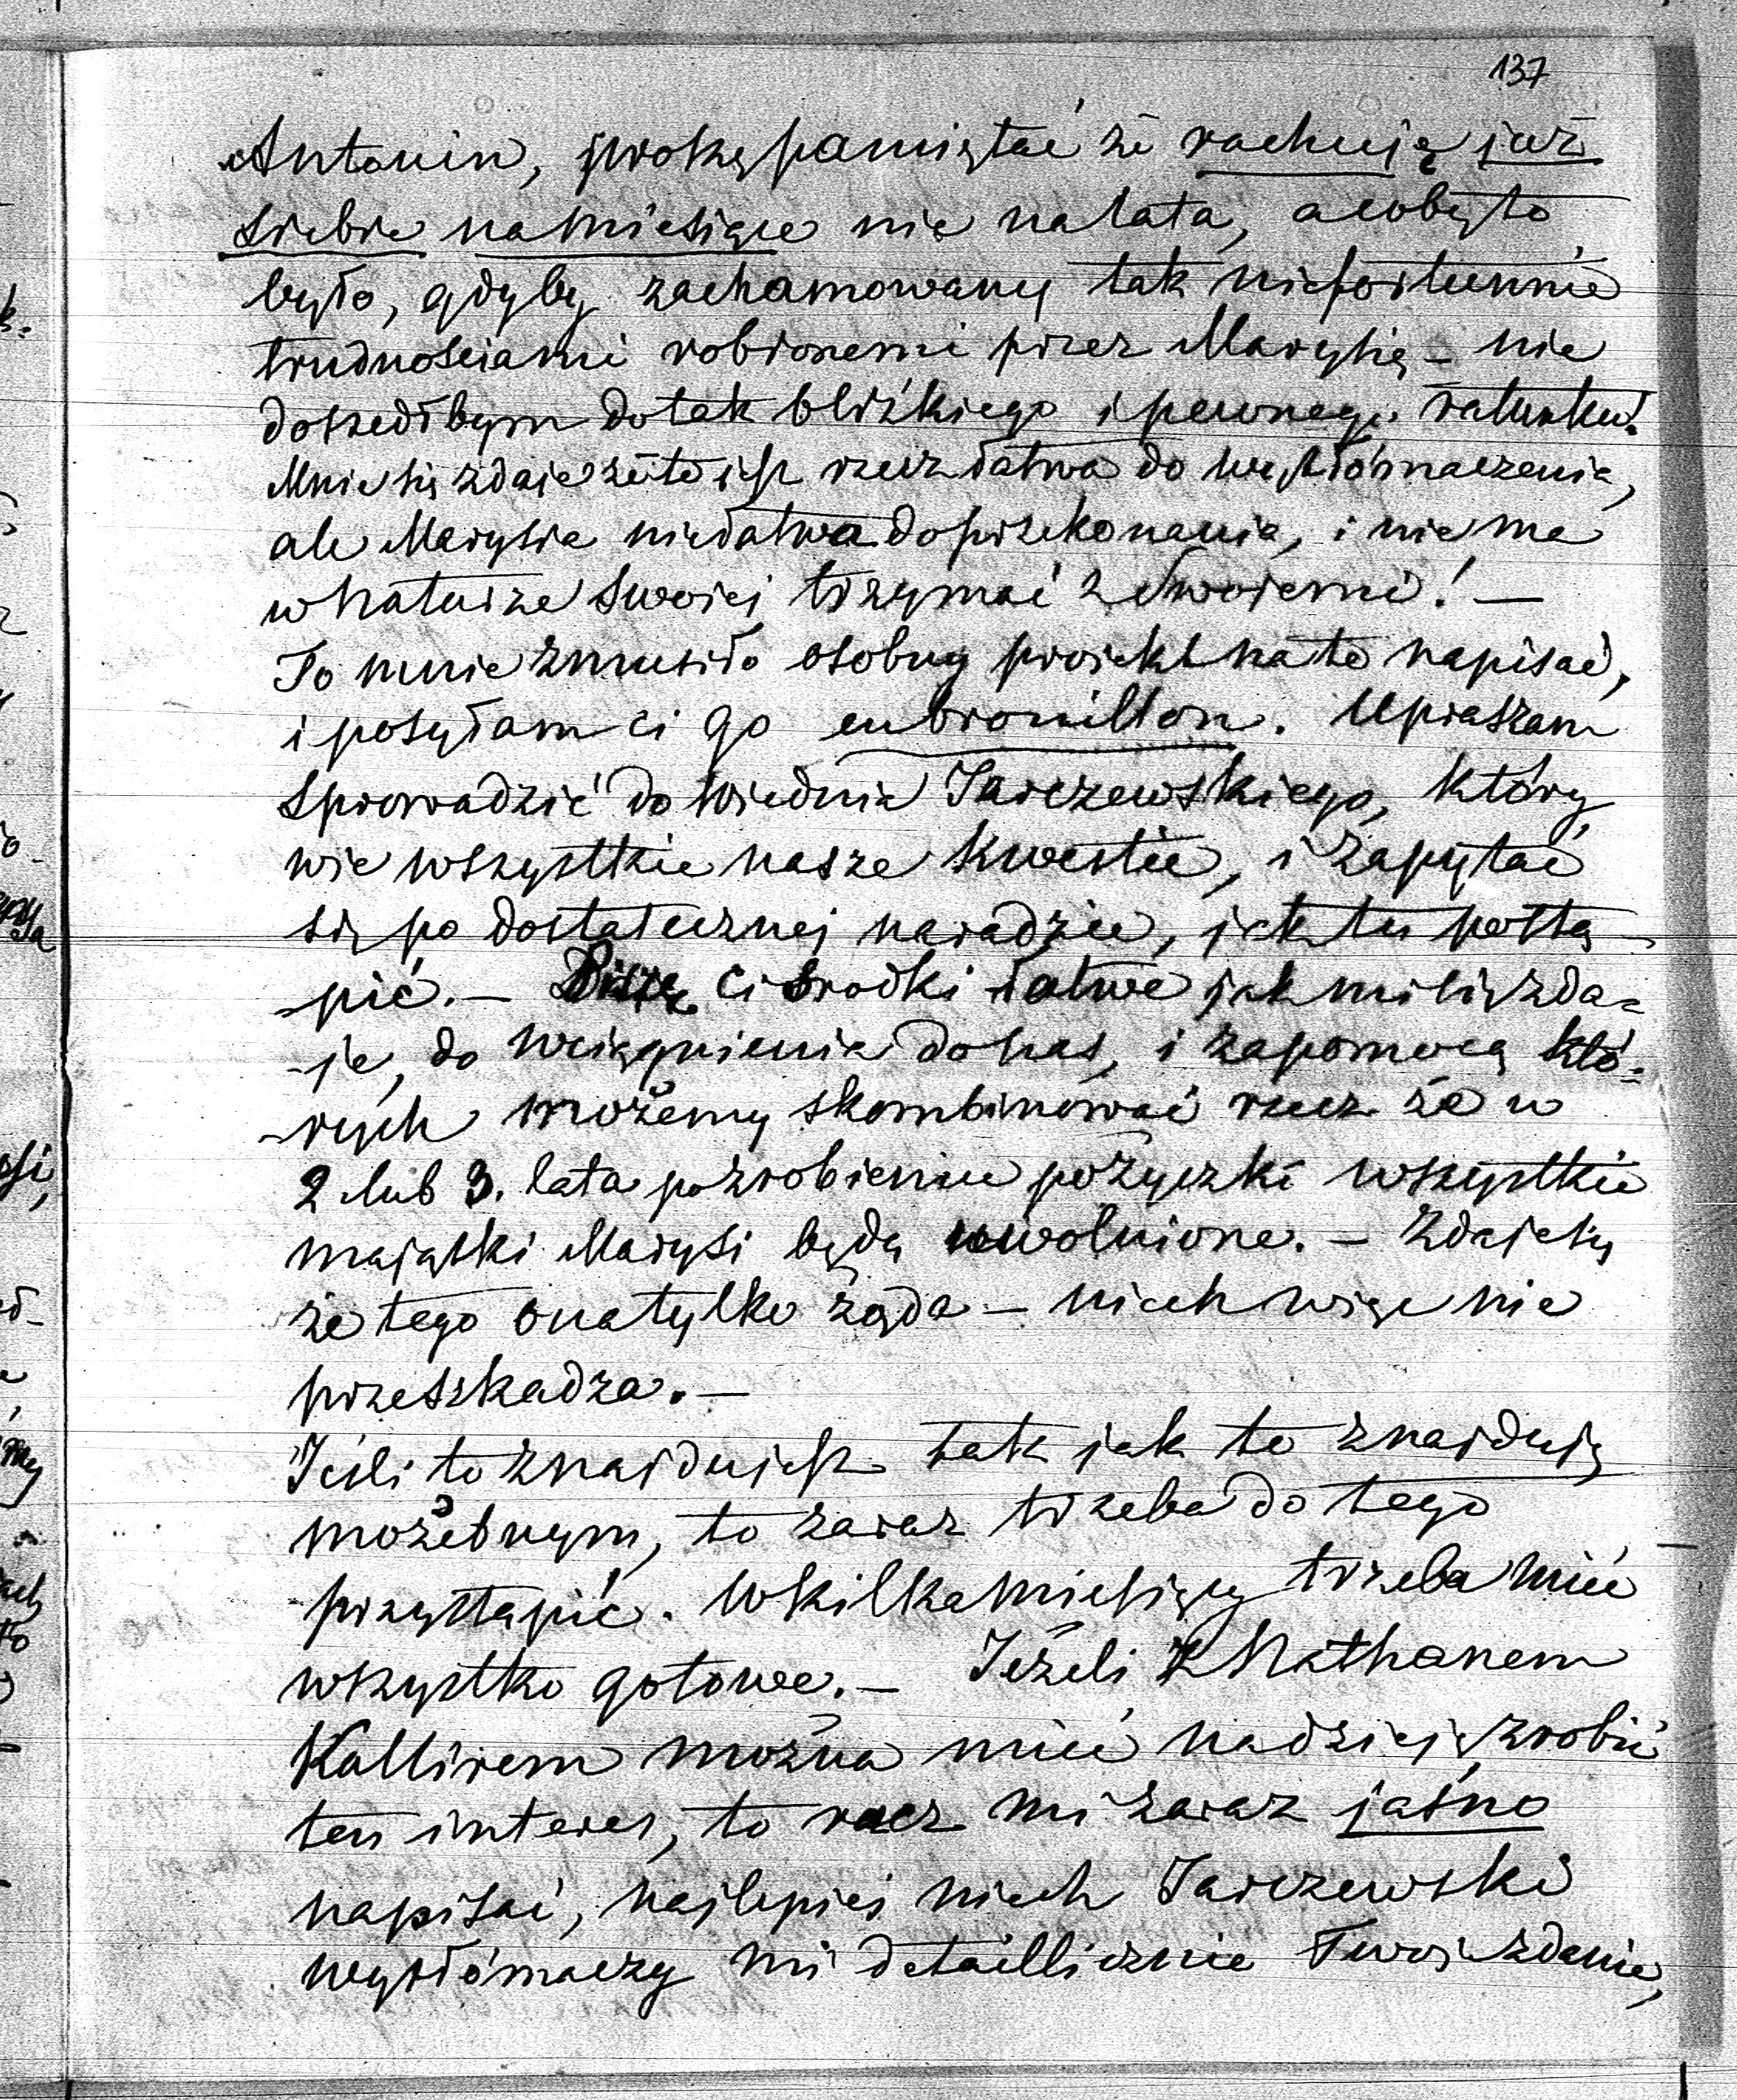 137
Antonin, proszę pamiętać że rachuję już
siebie na miesiące nie na lata, a coby to
było, gdyby zachamowany tak niefortunnie
trudnościami robionemi przez Marysię – nie
doszedłbym do tak bliźkiego i pewnego ratunku!
Mnie się zdaje że to jest rzecz łatwa do wytłómaczenia,
ale Marysia niełatwa do przekonania, i nie ma
w naturze swojej trzymać z swojemi! –
To mnie zmusiło osobny projekt na to napisać,
i posyłam ci go en brouillon. Upraszam
sprowadzić do Wiednia Jarczewskiego, który
wie wszystkie nasze kwestie, i zapytać
się po dostatecznej naradzie, jak tu postą-
-pić. – Piszę Ci środki łatwe jak mi się zda=
-je, do wciągnienia do nas, i za pomocą któ=
-rych możemy skombinować rzecz że w
2 lub 3. lata po zrobieniu pożyczki wszystkie
majątki Marysi będą uwolnione. – Zdaje się
że tego ona tylko żąda – niech więc nie
przeszkadza. –
Jeśli to znajdujesz tak jak to znajduję
możebnym, to zaraz trzeba do tego
przystąpić. W kilka miesięcy trzeba mieć
wszystko gotowe. – Jeżeli z Nathanem
Kallirem można mieć nadzieję zrobić
ten interes, to racz mi zaraz jaśno
napisać, najlepiej niech Jarczewski
wytłómaczy mi detaillicznie Twoje zdanie,